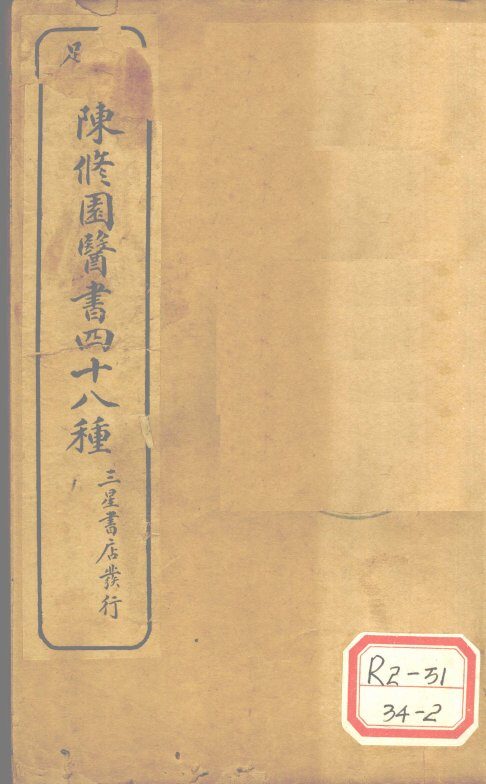 足
陳修園醫書四十八種
三星書店發行
R2-51
34-2